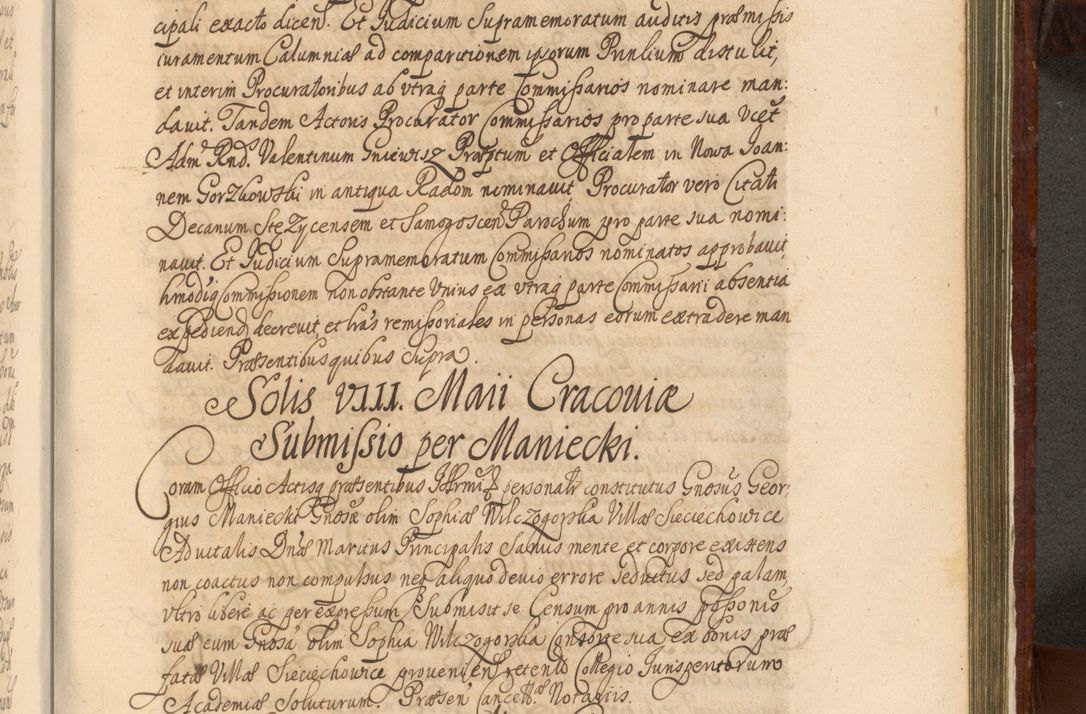 cipali exacto dicent. Et Judicium Supramemoratum auditis præmissis
iuramentum Calumniæ ad comparitionem ipsorum Prinlium distulit,
et interim Procuratoribus ab vtraq parte Commissarios nominare man:
dauit. Tandem Actoris Procurator Commissarios pro parte sua Vcet
Admd Rnd. Valentinum Gniewisz Præptum et Officialem in Nowa Ioan:
nem Gorzkowski in antiqua Radom nominauit Procurator vero Citati
Decanum Stezycensem et Samogoscen Parochum pro parte sua nomi:
nauit. Et Judicium Supramemoratum Commissarios nominatos approbauit,
hmodiq Commissionem non obstante Vnius ex vtraq parte Commissarii absentia
expediend decreuit et lras remissoriales in personas eorum extradere man
dauit. Præsentibus quibus Supra.
Solis VIII. Maii Cracouiæ
Submissio per Maniecki.
Coram Officio Actisq præsentibus personalr constitutus Gnosus Geor,
gius Maniecki Gnosæ olim Sophiæ Wilczogorska Villæ Sieciechowice
Aduitalis Dnæ Maritus Principalis Sanus mente et corpore existens
non coactus non compulsus neq aliquo deuio errore seductus sed palam,
vltro libere ac per expressum Submisit se Censum pro annis possonis
suæ cum Gnosa olim Sophia Wilczogorska Consorte sua ex bonis præ
fatæ Villæ Sieciechowice prouenien retento Collegio Jurisperitorum
Academiæ Soluturum. Præsen Cancellæ Notariis.